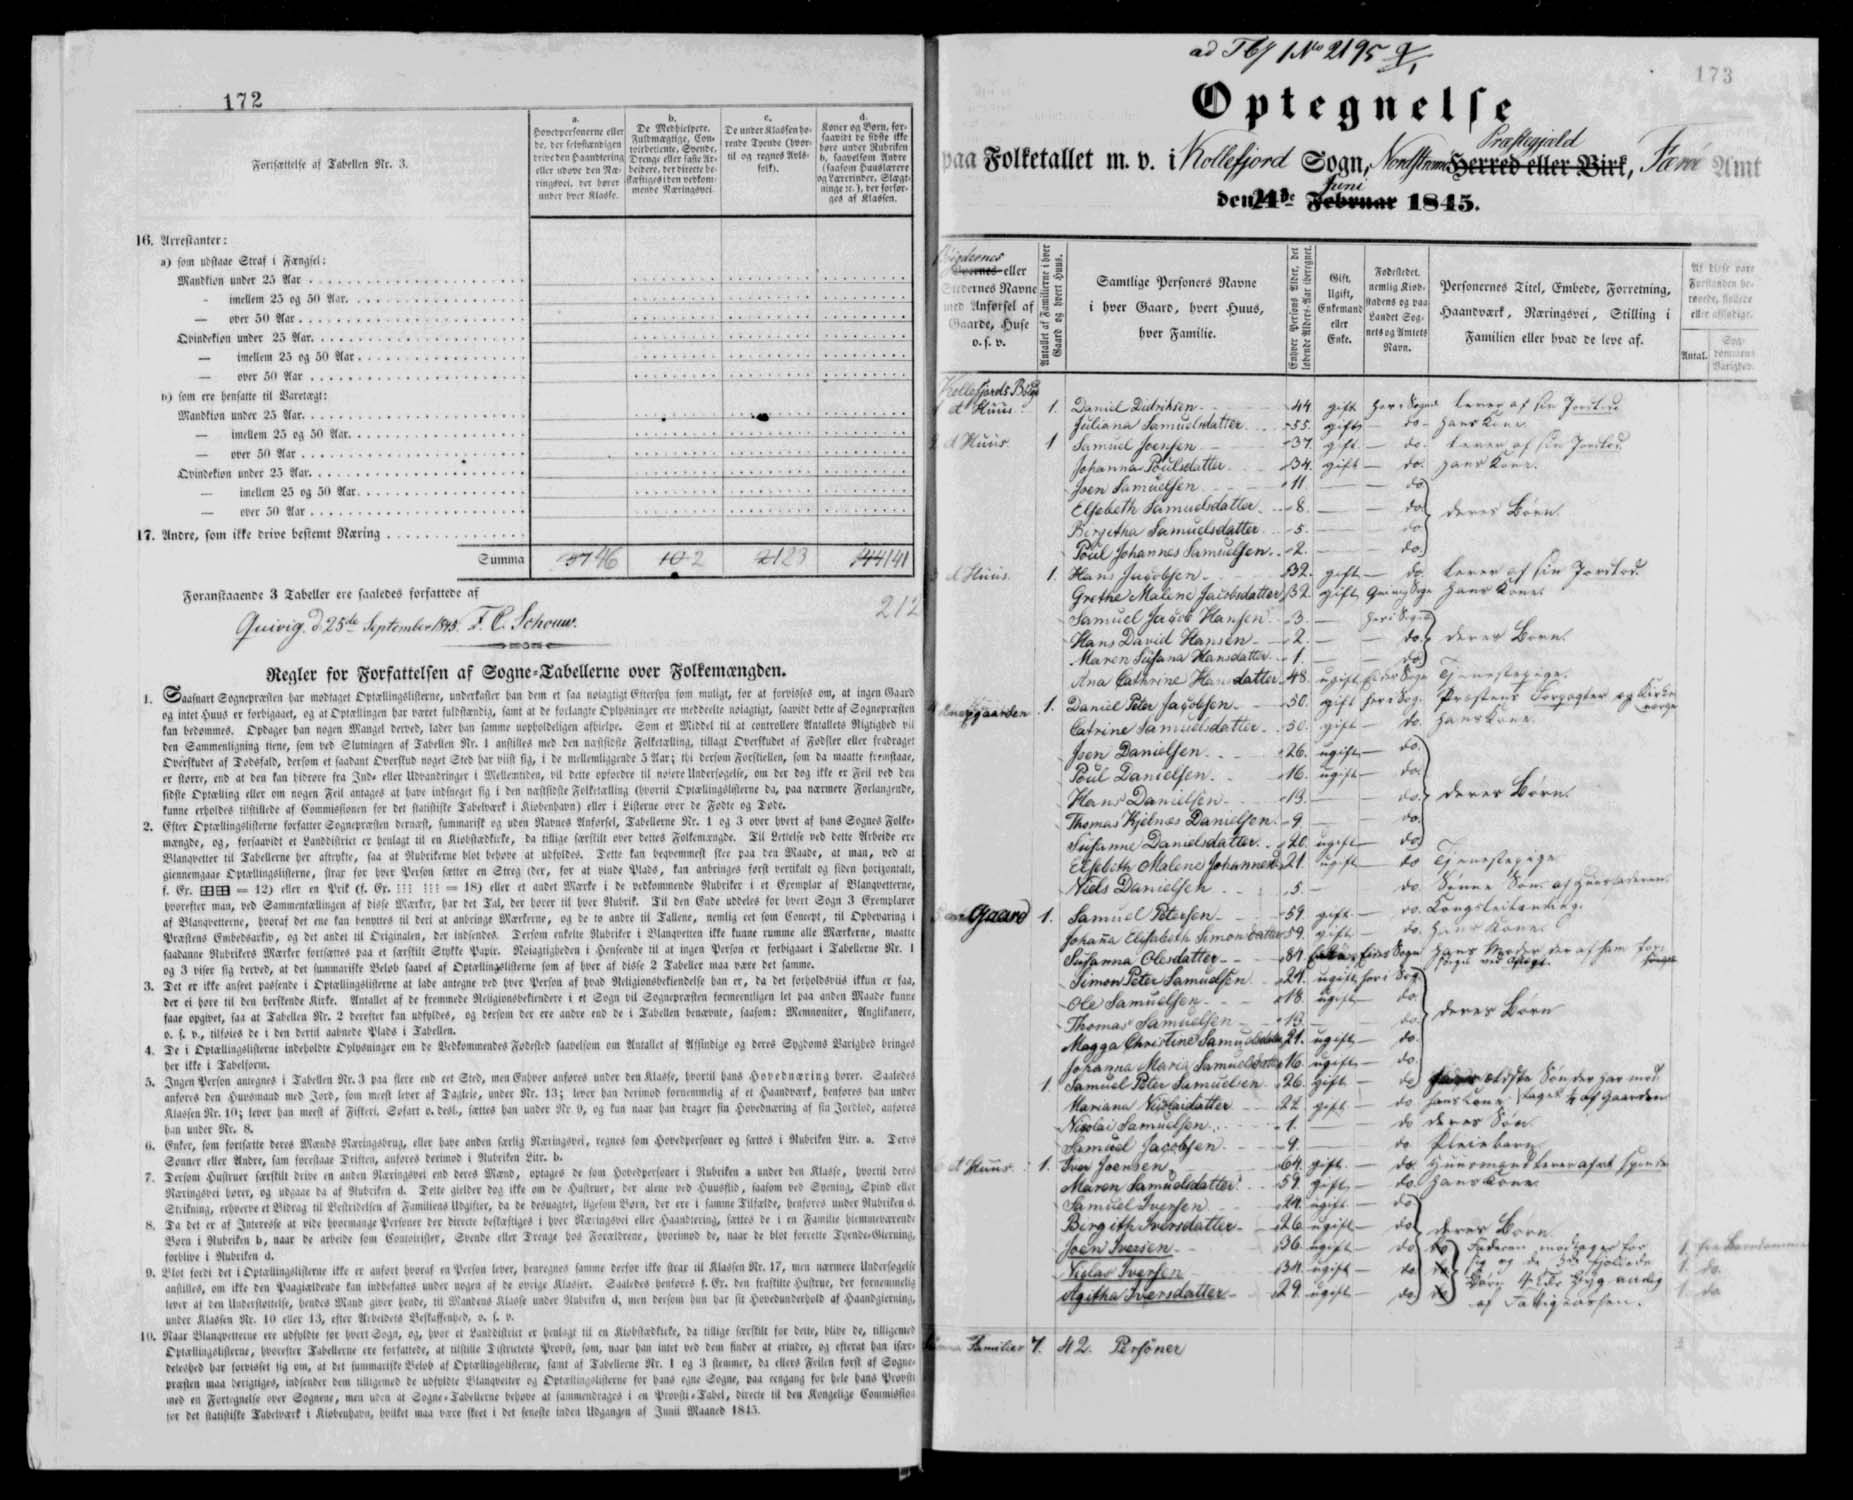 172
Fortsættelse af Tabellen Nr. 3.
a.
Hovedpersonerne eller
de, der selvstændigen
drive den Haandtering
eller udøve den Næ-
ringsvei, der hører
under hver Klasse.
b.
De Medhielpere,
Fuldmægtige, Con-
toirbetiente, Svende,
Drenge eller faste Ar-
beidere, der directe be-
skæftiges i den vedkom-
mende Næringsvei.
c.
De under Klassen hø-
rende Tyende (hvor-
til og regnes Avls-
folk).
d.
Koner og Børn, for-
saavidt de sidste ikke
høre under Rubriken
b, saavelsom Andre
(saasom Huuslærere
og Lærerinder, Slægt-
ninge ꝛc.), der forsør-
ges af Klassen.
16. Arrestanter:
a) som udstaae Straf i Fængsel:
Mandkiøn under 25 Aar
— imellem 25 og 50 Aar.
— over 50 Aar
Qvindekiøn under 25 Aar.
— imellem 25 og 50 Aar
— over 50 Aar
b) som ere hensatte til Varetægt:
Mandkiøn under 25 Aar.
— imellem 25 og 50 Aar.
— over 50 Aar
Qvindekiøn under 25 Aar.
— imellem 25 og 50 Aar.
— over 50 Aar
17. Andre, som ikke drive bestemt Næring
Summa 46 2 23 141
Foranstaaende 3 Tabeller ere saaledes forfattede af
212
Qvivig, d. 25de September 1845. F. C. Schouw.
Regler for Forfattelsen af Sogne-Tabellerne over Folkemængden.
1. Saasnart Sognepræsten har modtaget Optællingslisterne, underkaster han dem et saa nøiagtigt Eftersyn som muligt, for at forvisses om, at ingen Gaard
og intet Huus er forbigaaet, og at Optællingen har været fuldstændig, samt at de forlangte Oplysninger ere meddeelte nøiagtigt, saavidt dette af Sognepræsten
kan bedømmes. Opdager han nogen Mangel derved, lader han samme uopholdeligen afhielpe. Som et Middel til at controllere Antallets Rigtighed vil
den Sammenligning tiene, som ved Slutningen af Tabellen Nr. 1 anstilles med den næstsidste Folketælling, tillagt Overskudet af Fødsler eller fradraget
Overskudet af Dødsfald, dersom et saadant Overskud noget Sted har viist sig, i de mellemliggende 5 Aar; thi dersom Forskiellen, som da maatte fremstaae,
er større, end at den kan hidrøre fra Ind- eller Udvandringer i Mellemtiden, vil dette opfordre til nøiere Undersøgelse, om der dog ikke er Feil ved den
sidste Optælling eller om nogen Feil antages at have indsneget sig i den næstsidste Folketælling (hvortil Optællingslisterne da, paa nærmere Forlangende,
kunne erholdes tilstillede af Commissionen for det statistiske Tabelværk i Kiøbenhavn) eller i Listerne over de Fødte og Døde.
2. Efter Optællingslisterne forfatter Sognepræsten dernæst, summarisk og uden Navnes Anførsel, Tabellerne Nr. 1 og 3 over hvert af hans Sognes Folke-
mængde, og, forsaavidt et Landdistrict er henlagt til en Kiøbstædkirke, da tillige særskilt over dettes Folkemængde. Til Lettelse ved dette Arbeide ere
Blanqvetter til Tabellerne her aftrykte, saa at Rubrikerne blot behøve at udfyldes. Dette kan beqvemmest skee paa den Maade, at man, ved at
giennemgaae Optællingslisterne, strax for hver Person sætter en Streg (der, for at vinde Plads, kan anbringes først vertikalt og siden horizontalt,
f. Ex. = 12) eller en Prik (f. Ex. = 18) eller et andet Mærke i de vedkommende Rubriker i et Exemplar af Blanqvetterne,
hvorefter man, ved Sammentællingen af disse Mærker, har det Tal, der hører til hver Rubrik. Til den Ende uddeles for hvert Sogn 3 Exemplarer
af Blanqvetterne, hvoraf det ene kan benyttes til deri at anbringe Mærkerne, og de to andre til Tallene, nemlig eet som Concept, til Opbevaring i
Præstens Embedsarkiv, og det andet til Originalen, der indsendes. Dersom enkelte Rubriker i Blanqvetten ikke kunne rumme alle Mærkerne, maatte
saadanne Rubrikers Mærker fortsættes paa et særskilt Stykke Papir. Nøiagtigheden i Henseende til at ingen Person er forbigaaet i Tabellerne Nr. 1
og 3 viser sig derved, at det summariske Beløb saavel af Optællingslisterne som af hver af disse 2 Tabeller maa være det samme.
3. Det er ikke anseet passende i Optællingslisterne at lade antegne ved hver Person af hvad Religionsbekiendelse han er, da det forholdsviis ikkun er faa,
der ei høre til den herskende Kirke. Antallet af de fremmede Religionsbekiendere i et Sogn vil Sognepræsten formeentligen let paa anden Maade kunne
faae opgivet, saa at Tabellen Nr. 2 derefter kan udfyldes, og dersom der ere andre end de i Tabellen benævnte, saasom: Memnoniter, Anglikanere,
o. s. v., tilføies de i den dertil aabnede Plads i Tabellen.
4. De i Optællingslisterne indeholdte Oplysninger om de Vedkommendes Fødested saavelsom om Antallet af Afsindige og deres Sygdoms Varighed bringes
her ikke i Tabelform.
5. Ingen Person antegnes i Tabellen Nr. 3 paa flere end eet Sted, men Enhver anføres under den Klasse, hvortil hans Hovednæring hører. Saaledes
anføres den Huusmand med Jord, som meest lever af Dagleie, under Nr. 13; lever han derimod fornemmelig af et Haandværk, henføres han under
Klassen Nr. 10; lever han meest af Fiskeri, Søfart o. desl., sættes han under Nr. 9, og kun naar han drager sin Hovednæring af sin Jordlod, anføres
han under Nr. 8.
6. Enker, som fortsætte deres Mænds Næringsbrug, eller have anden særlig Næringsvei, regnes som Hovedpersoner og sættes i Rubriken Litr. a. Deres
Sønner eller Andre, som forestaae Driften, anføres derimod i Rubriken Litr. b.
7. Dersom Hustruer særskilt drive en anden Næringsvei end deres Mænd, optages de som Hovedpersoner i Rubriken a under den Klasse, hvortil deres
Næringsvei hører, og udgaae da af Rubriken d. Dette gielder dog ikke om de Hustruer, der alene ved Huusflid, saasom ved Syening, Spind eller
Strikning, erhverve et Bidrag til Bestridelsen af Familiens Udgifter, da de desuagtet, ligesom Børn, der ere i samme Tilfælde, henføres under Rubriken d.
8. Da det er af Interesse at vide hvormange Personer der directe beskæftiges i hver Næringsvei eller Haandtering, sættes de i en Familie hiemmeværende
Børn i Rubriken b, naar de arbeide som Contoirister, Svende eller Drenge hos Forældrene, hvorimod de, naar de blot forrette Tyende-Gierning,
forblive i Rubriken d.
9. Blot fordi det i Optællingslisterne ikke er anført hvoraf en Person lever, henregnes samme derfor ikke strax til Klassen Nr. 17, men nærmere Undersøgelse
anstilles, om ikke den Paagieldende kan indbefattes under nogen af de øvrige Klasser. Saaledes henføres f. Ex. den fraskilte Hustrue, der fornemmelig
lever af den Understøttelse, hendes Mand giver hende, til Mandens Klasse under Rubriken d, men dersom hun har sit Hovedunderhold af Haandgierning,
under Klassen Nr. 10 eller 13, efter Arbeidets Beskaffenhed, o. s. v.
10. Naar Blanqvetterne ere udfyldte for hvert Sogn, og, hvor et Landdistrict er henlagt til en Kiøbstædkirke, da tillige særskilt for dette, blive de, tilligemed
Optællingslisterne, hvorefter Tabellerne ere forfattede, at tilstille Districtets Provst, som, naar han intet ved dem finder at erindre, og efterat han især-
deleshed har forvisset sig om, at det summariske Beløb af Optællingslisterne, samt af Tabellerne Nr. 1 og 3 stemmer, da ellers Feilen først af Sogne-
præsten maa berigtiges, indsender dem tilligemed de udfyldte Blanqvetter og Optællingslisterne for hans egne Sogne, paa eengang for hele hans Provsti
med en Fortegnelse over Sognene, men uden at Sogne-Tabellerne behøve at sammendrages i en Provsti-Tabel, directe til den Kongelige Commission
for det statistiske Tabelværk i Kiøbenhavn, hvilket maa være skeet i det seneste inden Udgangen af Junii Maaned 1845.
173
No 2195
Optegnelse
Præstegjæld
paa Folketallet m. v. i Kollefjord Sogn, Nordstrømø Herred eller Birk, Færø Amt
Juni
den 24de Februar 1845.
Bygdernes
Byernes eller
Stedernes Navne
med Anførsel af
Gaarde, Huse
o. s. v.
Antallet af Familierne i hver
Gaard og hvert Huus.
Samtlige Personers Navne
i hver Gaard, hvert Huus,
hver Familie.
Enhver Persons Alder, det
løbende Alders-Aar iberegnet.
Gift,
Ugift,
Enkemand
eller
Enke.
Fødestedet,
nemlig Kiøb-
stadens og paa
Landet Sog-
nets og Amtets
Navn.
Personernes Titel, Embede, Forretning,
Haandværk, Næringsvei, Stilling i
Familien eller hvad de leve af.
Af disse vare
Forstanden be-
røvede, fiollede
eller afsindige.
Antal.
Syg-
dommens
Varighed.
Kollefjords Bygd
et Huus. 1. Daniel Didriksen 44. gift her i Sognet lever af sin Jordlod
Juliana Samuelsdatter 55. gift do hans Kone.
et Huus 1 Samuel Joensen 37. gift do lever af sin Jordlod
Johanna Poulsdatter 34. gift do. hans Kone.
Joen Samuelsen 11 do
Elsebeth Samuelsdatter 8. do deres Børn.
Birgetha Samuelsdatter 5. do
Poul Johannes Samuelsen 2. do.
et Huus. 1. Hans Jacobsen 32. gift do. lever af sin Jordlod.
Grethe Malene Jacobsdatter 32. gift Qvivig Sogn hans Kone.
Samuel Jacob Hansen 3. her i Sognet
Hans David Hansen 2. do. deres Børn.
Maren Susana Hansdatter 1. do
Ana Cathrine Hansdatter 48. ugift Eides Sogn Tjenestepige.
1. Daniel Peter Jacobsen 50. gift her i Sog. Præstens Forpagter og Kirke
værge
Catrine Samuelsdatter 50. gift do. hans Kone.
Joen Danielsen 26. ugift do.
Poul Danielsen. 16. ugift do.
Hans Danielsen 13. do. deres Børn.
Thomas Kjelnæs Danielsen. 9 do.
Susanne Danielsdatter. 20. ugift do
Elsebeth Malene Johannesd 21. ugift do Tjenestepige
Niels Danielsen 5. do.
Gaard 1. Samuel Petersen 59. gift do. Kongsleilænding.
Johanna Elisabeth Simonsdatter 59. gift do. hans Kone.
Susanna Olesdatter 84. Enke Eides Sogn hans Moder der af ham for-
Simon Peter Samuelsen 24. ugift her i Sog
Ole Samuelsen 18. ugift do.
Thomas Samuelsen 13. do. deres Børn
Magga Christine Samuelsdatter 21. ugift do.
Johanna Maria Samuelsdatter 16. ugift do.
1. Samuel Peter Samuelsen 26. gift do ældste Søn der har mod
Mariana Nicolaidatter 22 gift do hans Kone taget ¼ af Gaarden
Nicolai Samuelsen. 1. do deres Søn
Samuel Jacobsen 9. do. Pleiebarn.
et Huus 1. Iver Joensen 64. gift. do. Huusmand lever af
Maren Samuelsdatter 59. gift do. hans Kone.
Samuel Iversen 24. ugift do
Birgith Iversdatter 26 ugift do deres Børn
Joen Iversen 36. ugift do. Faderen modtager for 1 fra Barndommen
Niclas Iversen 34. ugift do sig og de 1 do.
Agitha Iversdatter 29. ugift do Børn 1 do
af Fattigcassen.
Familier 7. 42. Personer